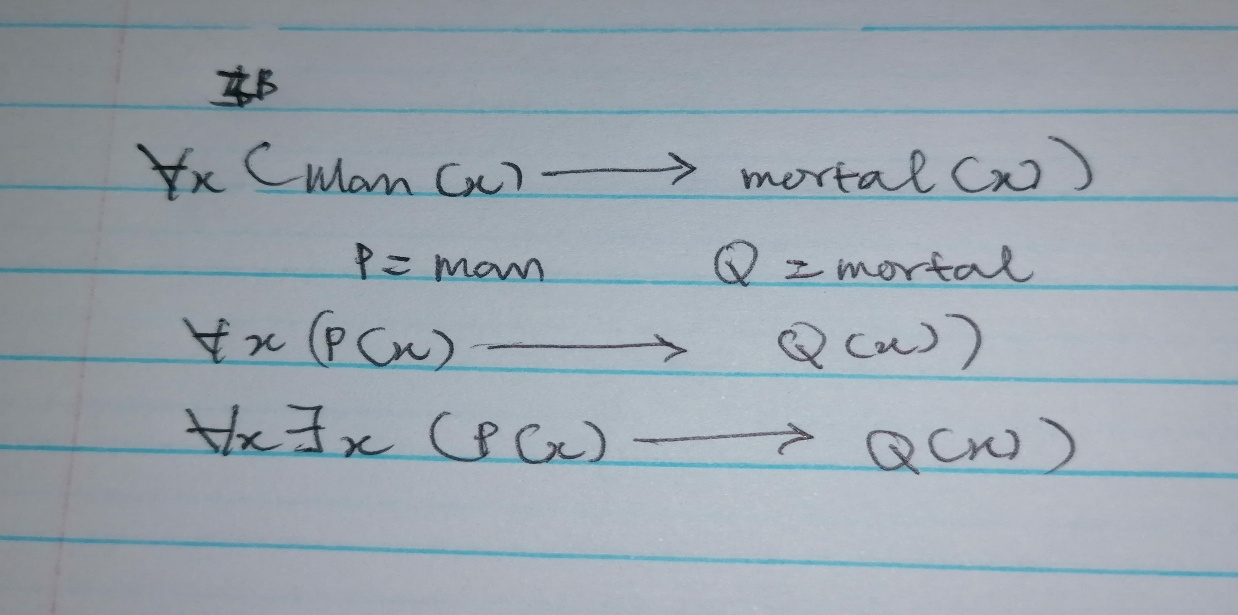 ∀x (Man (x) ⟶ mortal (x))
P = man Q = mortal
∀x (P(x) ⟶ Q(x))
∀x ∃x (P(x) ⟶ Q(x))